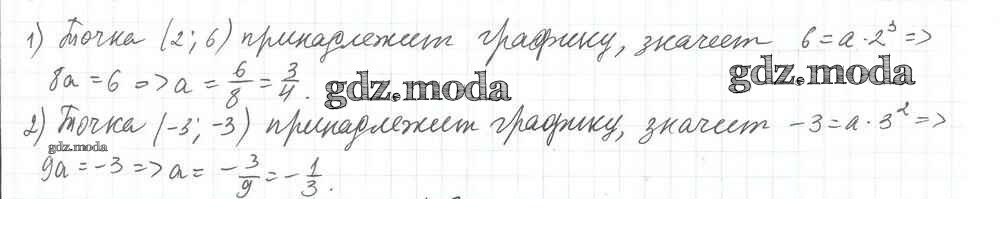 1) Точка (2; 6) принадлежит графику, значит 6 = a · 2³ =>
8a = 6 => a = 6/8 = 3/4.
gdz.moda
gdz.moda
2) Точка (-3; -3) принадлежит графику, значит -3 = a · 3² =>
gdz.moda
9a = -3 => a = -3/9 = -1/3.